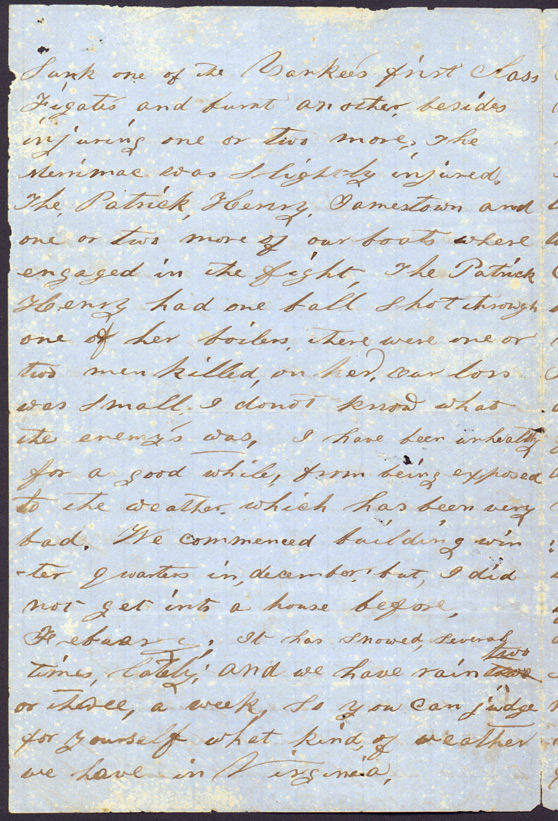 Sunk one of the Yankees first Class
Figates and burnt another, besides
injuring one or two more. The
Merrimac was Slightly injured.
The, Patrick, Henry, Jamestown and
one or two, more of our boats where
engaged in the fight, The Patrick
Henry had one ball shot through
one of her boilers, there were one or
two men killed, on her, our loss
was small. I donot know what
the enemy's was, I have been unhealthy
for a good while, from being exposed
to the weather, which has been very
bad. We commenced building win
-ter quarters in, december, but, I did
not get into a house before,
Febuary, It has snowed, several
times, lately, and we have rain two
or three, a week, so you can judge
for yourself what kind, of weather
we have in Virginia,